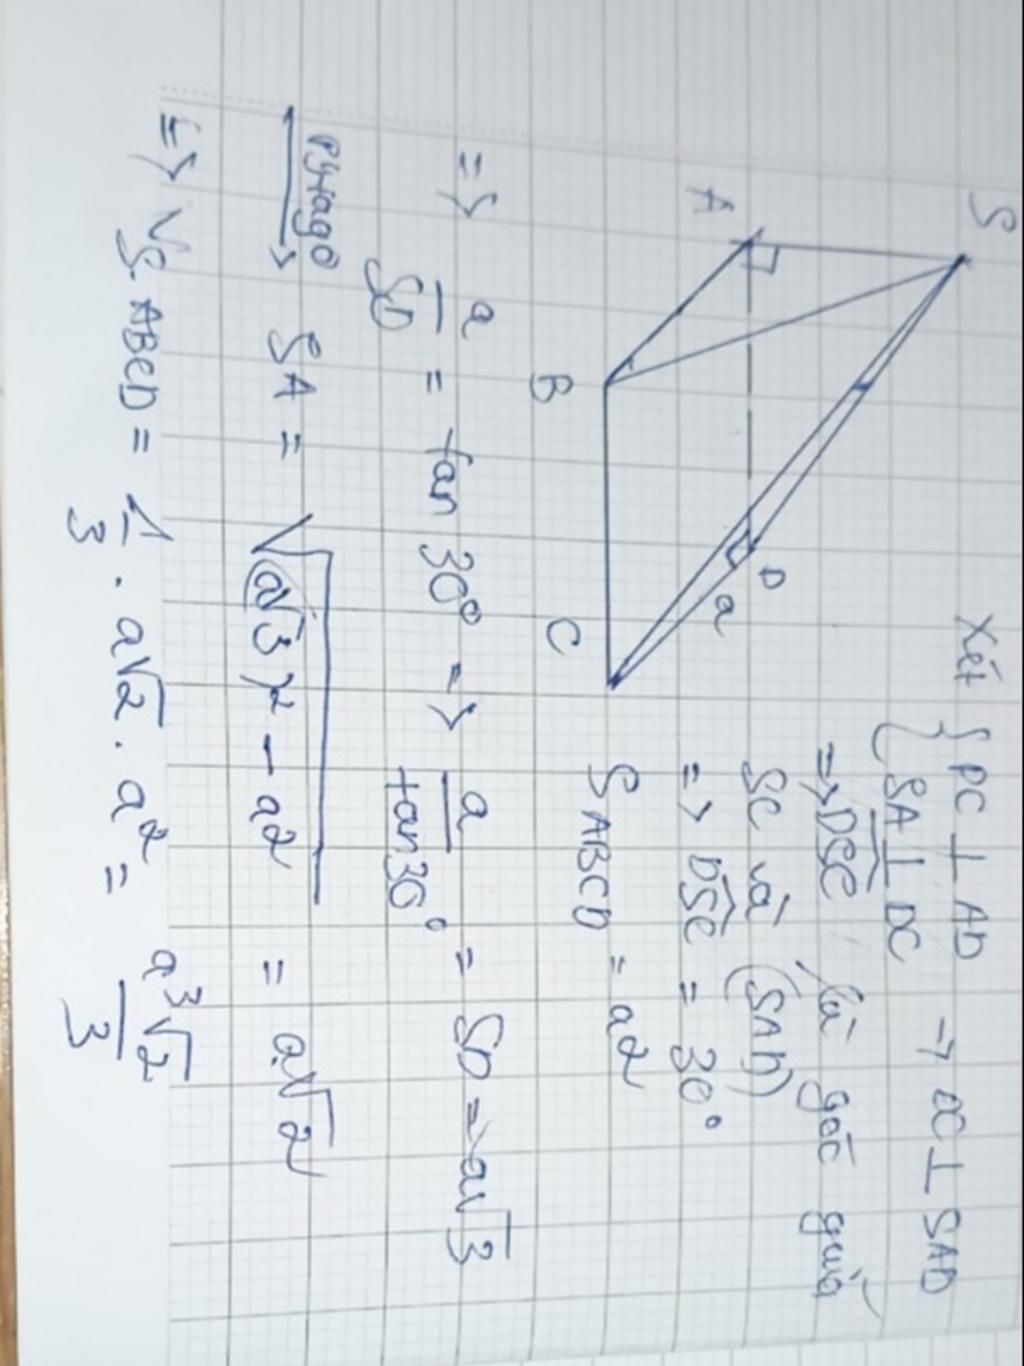 S
A
B
C
D
a
Xét { DC ⊥ AD
SA ⊥ DC → DC ⊥ SAD
=> DSC là góc giữa
SC và (SAD)
=> DSC = 30°
S ABCD = a²
=> a/SD = tan 30° -> a/tan30° = SD => a√3
Pytago → SA = √((a√3)² - a²) = a√2
=> V S.ABCD = 1/3 . a√2 . a² = a³√2/3